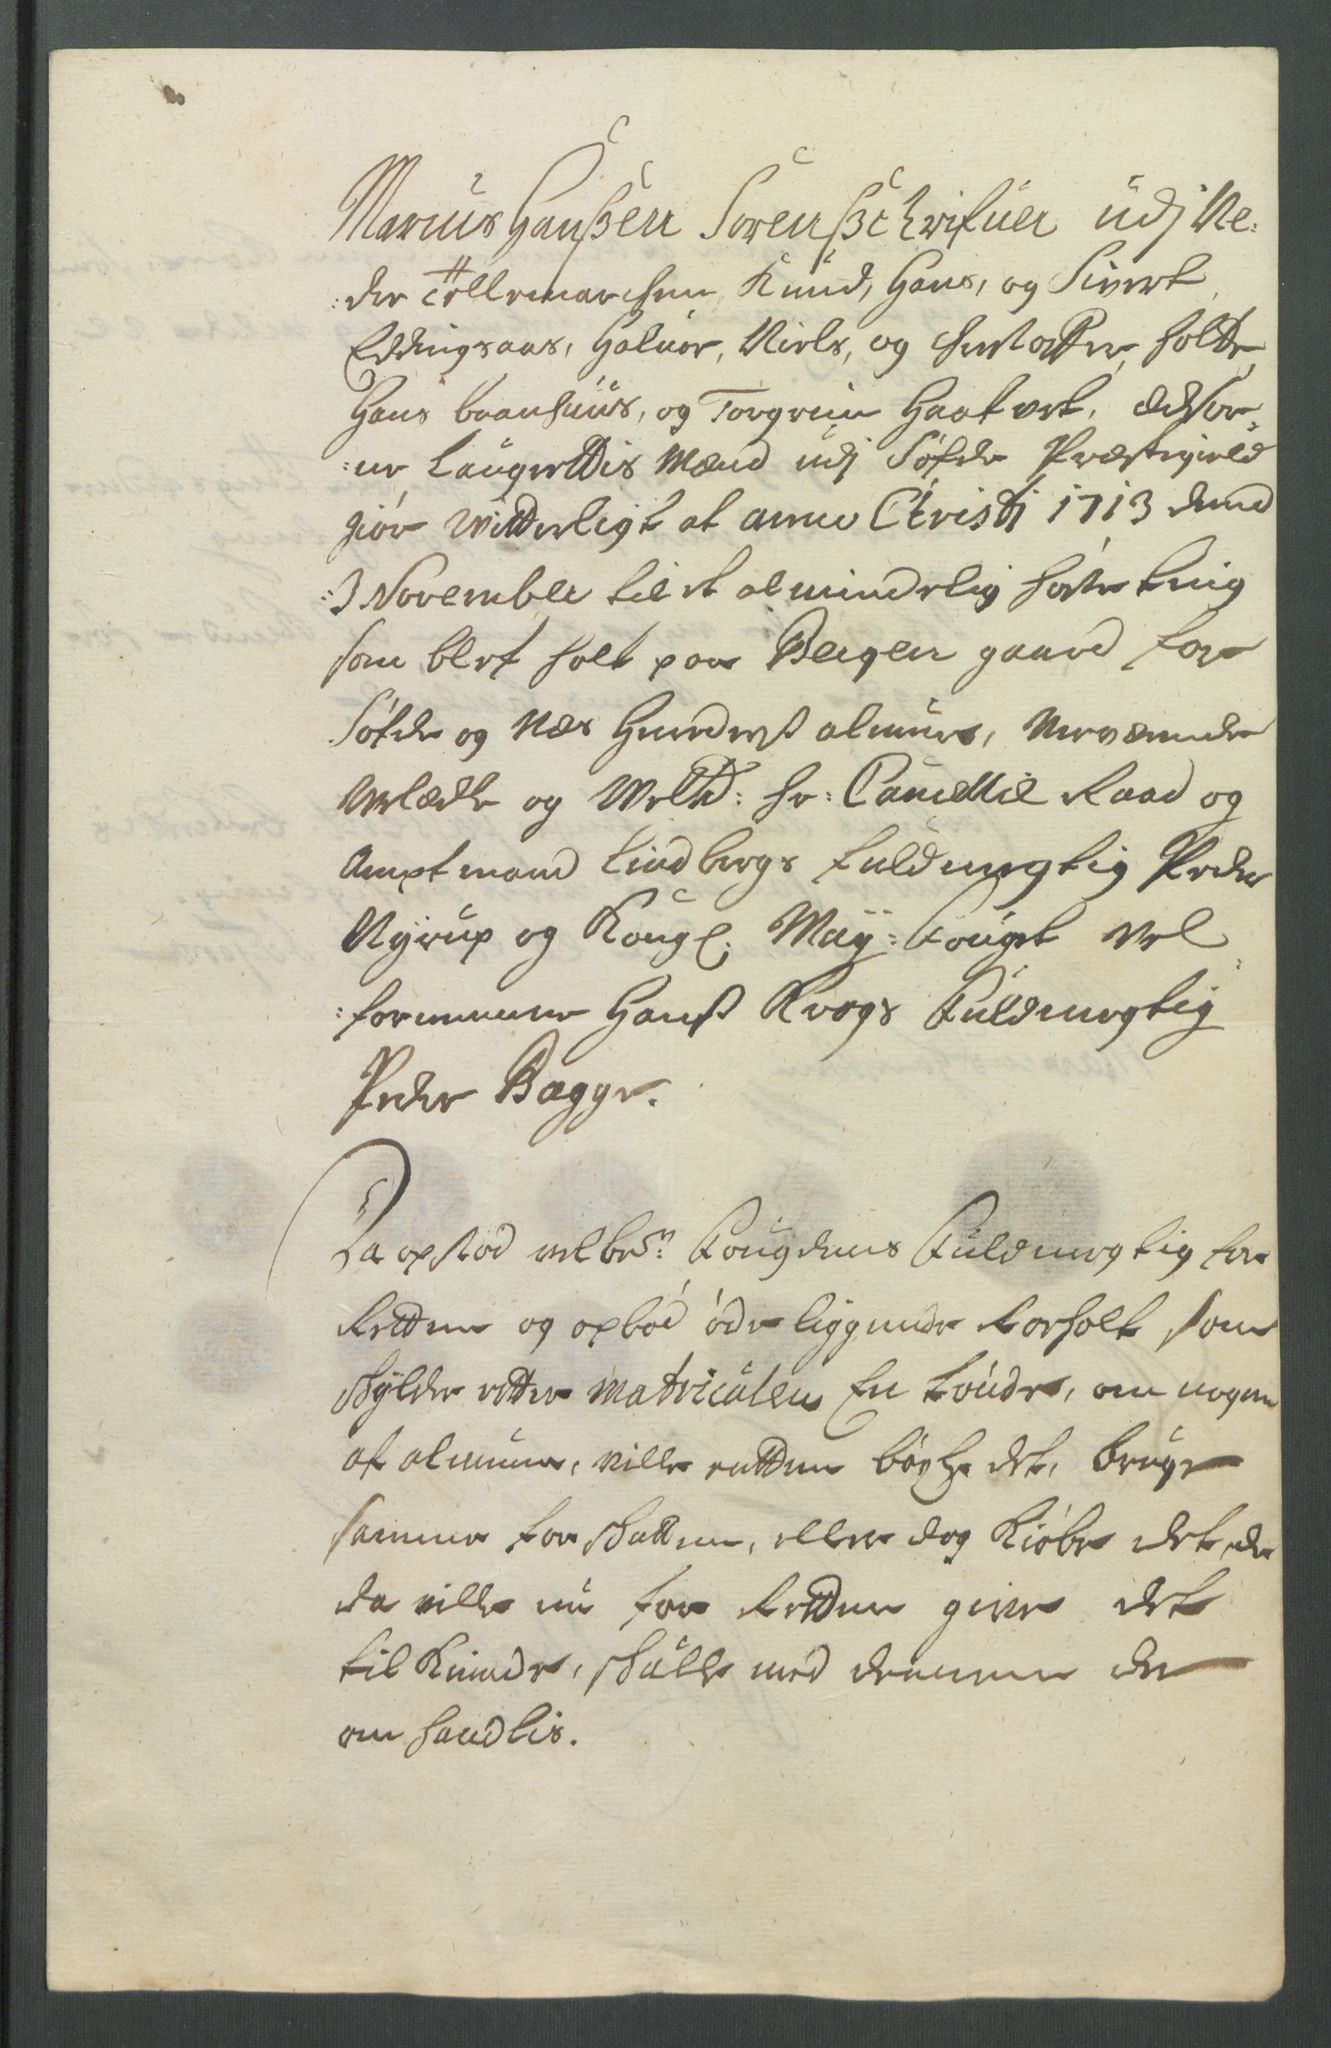 Marcus Hanßen Sorenßchrifuer udj Ne:
:der Tellemarchen, Knud, Hans, og Sivert
Eddingsaas, Haluor, Niels, og Christopher Holte,
Hans baashuus, og Torgrim Haatvet, Edsor:
:ne Laugrettis Mænd udj Søfde Præstegield
giør Witterligt at anno Christi 1713 dend
:3 November til et almindelig høste ting
som blef holt paa Bergen gaard for
Søfde og Næs Hendreß almue, Nerværende
Velædle og Welbd: hr: Cancellie Raad og
Amptmand Lindbergs fuldmegtig Peder
Nyrup og Kongl: May: Fougt vel
:fornemme Hanß Krogs Fuldmegtig
Peder Bagge.
Da opstod velbem: Fougdens Fuldmegtig for
Retten og opbød øde liggende Rorholt som
skylder efter Matriculen En tønde, om nogen
af almuen, ville enten bøxle det, bruge
samme for skatten, eller dog kiøbe det, de
da ville nu for Retten give det
til kiende, skulle med dennem der
om handlis.